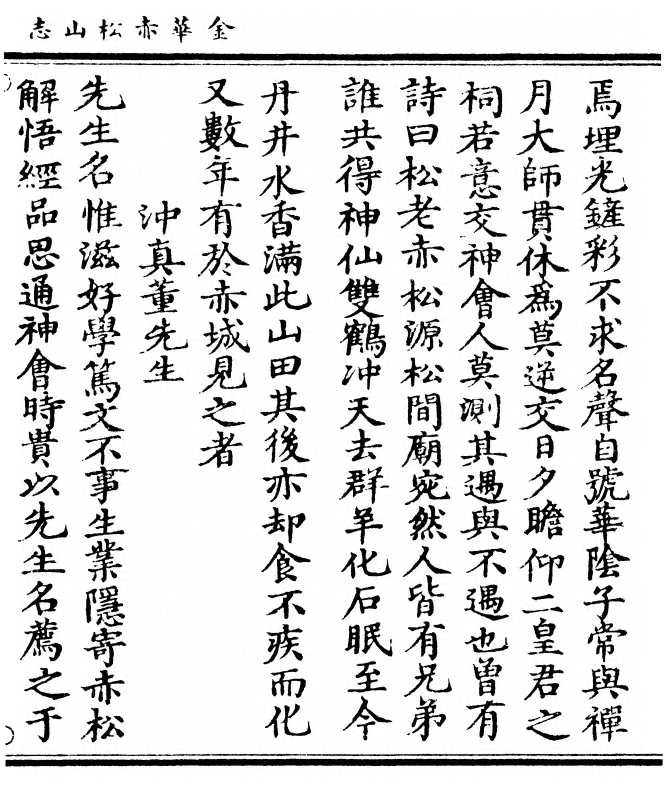 金華赤松山志
焉埋光鏟彩不求名聲自號華陰子常與禪
月大師貫休為莫逆交日夕瞻仰二皇君之
祠若意交神會人莫測其遇與不遇也曾有
詩曰松老赤松源松間廟宛然人皆有兄弟
誰共得神仙雙鶴冲天去群羊化石眠至今
丹井水香滿此山田其後亦却食不疾而化
又數年有於赤城見之者
冲真董先生
先生名惟滋好學篤文不事生業隱寄赤松
解悟經品思通神會時貴以先生名薦之于